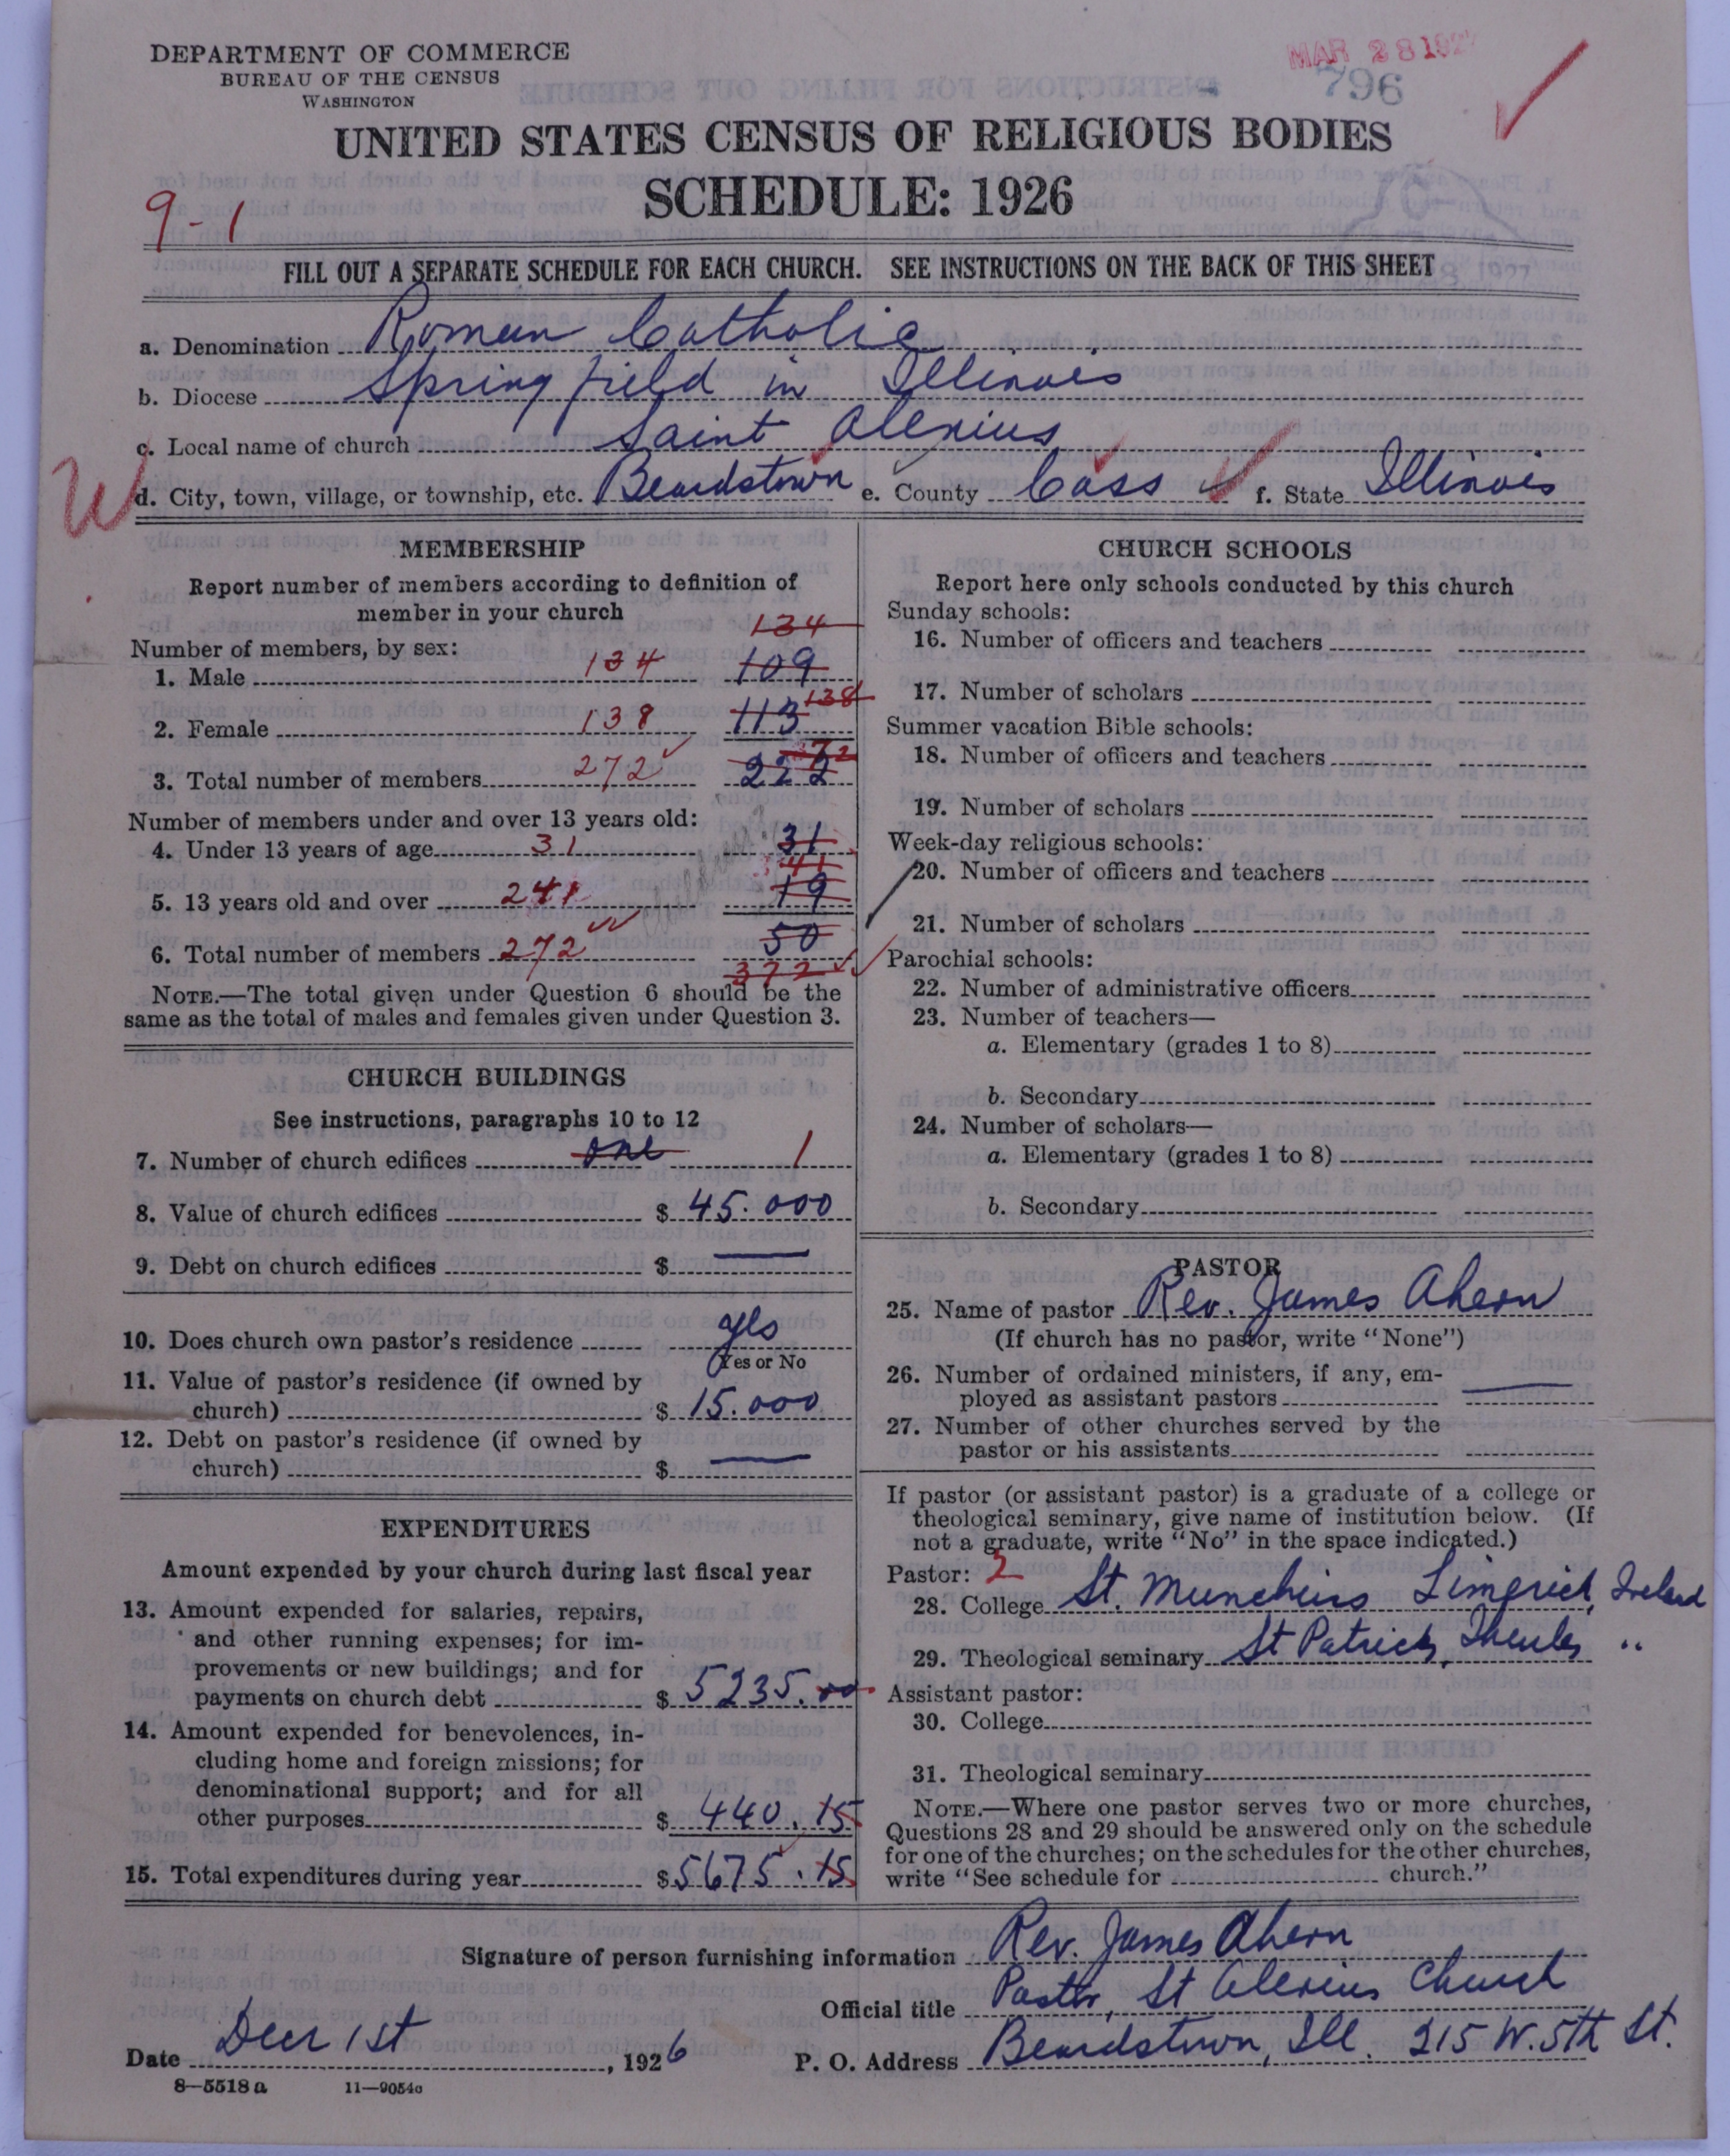 DEPARTMENT OF COMMERCE
BUREAU OF THE CENSUS
WASHINGTON
MAR 28 192
796
UNITED STATES CENSUS OF RELIGIOUS BODIES
SCHEDULE: 1926
9-1
FILL OUT A SEPARATE SCHEDULE FOR EACH CHURCH. SEE INSTRUCTIONS ON THE BACK OF THIS SHEET
a. Denomination Roman Catholic
b. Diocese Springfield in Illinois
c. Local name of church Saint Alexius
W
d. City, town, village, or township, etc. Beardstown e. County Cass f. State Illinois
MEMBERSHIP
Report number of members according to definition of
member in your church
134
Number of members, by sex:
1. Male 134 109
138
2. Female 138 113
72
3. Total number of members 272 222
Number of members under and over 13 years old:
4. Under 13 years of age 31 31
41
5. 13 years old and over 241 19
6. Total number of members 272 50
372
NOTE.—The total given under Question 6 should be the
same as the total of males and females given under Question 3.
CHURCH BUILDINGS
See instructions, paragraphs 10 to 12
7. Number of church edifices one 1
8. Value of church edifices $ 45.000
9. Debt on church edifices $ —
10. Does church own pastor's residence yes
Yes or No
11. Value of pastor's residence (if owned by
church) $ 15.000
12. Debt on pastor's residence (if owned by
church) $ —
EXPENDITURES
Amount expended by your church during last fiscal year
13. Amount expended for salaries, repairs,
and other running expenses; for im-
provements or new buildings; and for
payments on church debt $ 5235.00
14. Amount expended for benevolences, in-
cluding home and foreign missions; for
denominational support; and for all
other purposes $ 440.15
15. Total expenditures during year $ 5675.15
CHURCH SCHOOLS
Report here only schools conducted by this church
Sunday schools:
16. Number of officers and teachers
17. Number of scholars
Summer vacation Bible schools:
18. Number of officers and teachers
19. Number of scholars
Week-day religious schools:
20. Number of officers and teachers
21. Number of scholars
Parochial schools:
22. Number of administrative officers
23. Number of teachers—
a. Elementary (grades 1 to 8)
b. Secondary
24. Number of scholars—
a. Elementary (grades 1 to 8)
b. Secondary
PASTOR
25. Name of pastor Rev. James Ahern
(If church has no pastor, write "None")
26. Number of ordained ministers, if any, em-
ployed as assistant pastors —
27. Number of other churches served by the
pastor or his assistants
If pastor (or assistant pastor) is a graduate of a college or
theological seminary, give name of institution below. (If
not a graduate, write "No" in the space indicated.)
Pastor: 2
28. College St. Munchins Limerick, Ireland
29. Theological seminary St Patricks, Thurles "
Assistant pastor:
30. College
31. Theological seminary
NOTE.—Where one pastor serves two or more churches,
Questions 28 and 29 should be answered only on the schedule
for one of the churches; on the schedules for the other churches,
write "See schedule for church."
Signature of person furnishing information Rev. James Ahern
Official title Pastor, St Alexius Church
Date Decr 1st, 1926 P. O. Address Beardstown, Ill. 215 W. 5th St.
8—5518 a 11—9054a